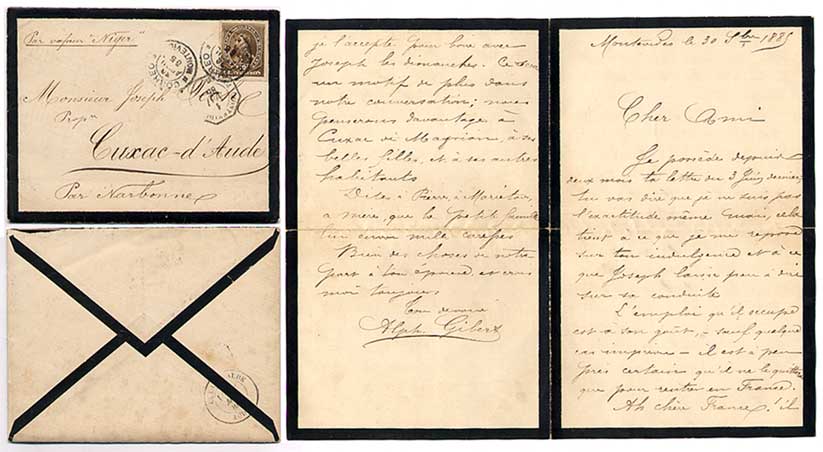 Par vapeur "Niger"
Monsieur Joseph
Propre
Cuxac-d'Aude
Par Narbonne
Montevideo le 30 8bre 1885
Cher Ami
Je possède depuis
deux mois ta lettre du 3 Juin dernier,
tu vas dire que je ne suis pas
l'exactitude même mais, cela
tient à ce que je me repose
sur ton indulgence et à ce
que Joseph laisse peu à dire
sur sa conduite
L'emploi qu'il occupe
est à son goût, - sauf quelque
cas imprévu - il est à peu
près certain qu'il ne le quittera
que pour rentrer en France.
Ah chère France! s'il
je l'accepte pour boire avec
Joseph les dimanches. Ce sera
un motif de plus dans
notre conversation; nous
penserons davantage à
Cuxac à ses
belles filles, et à ses autres
habitants
Dites à Pierre, à
sa mère, que le petit
lui envoie mille caresses
Bien des choses de notre
part à ton épouse et crois
moi toujours
Ton dévoué
Alph. Gibert